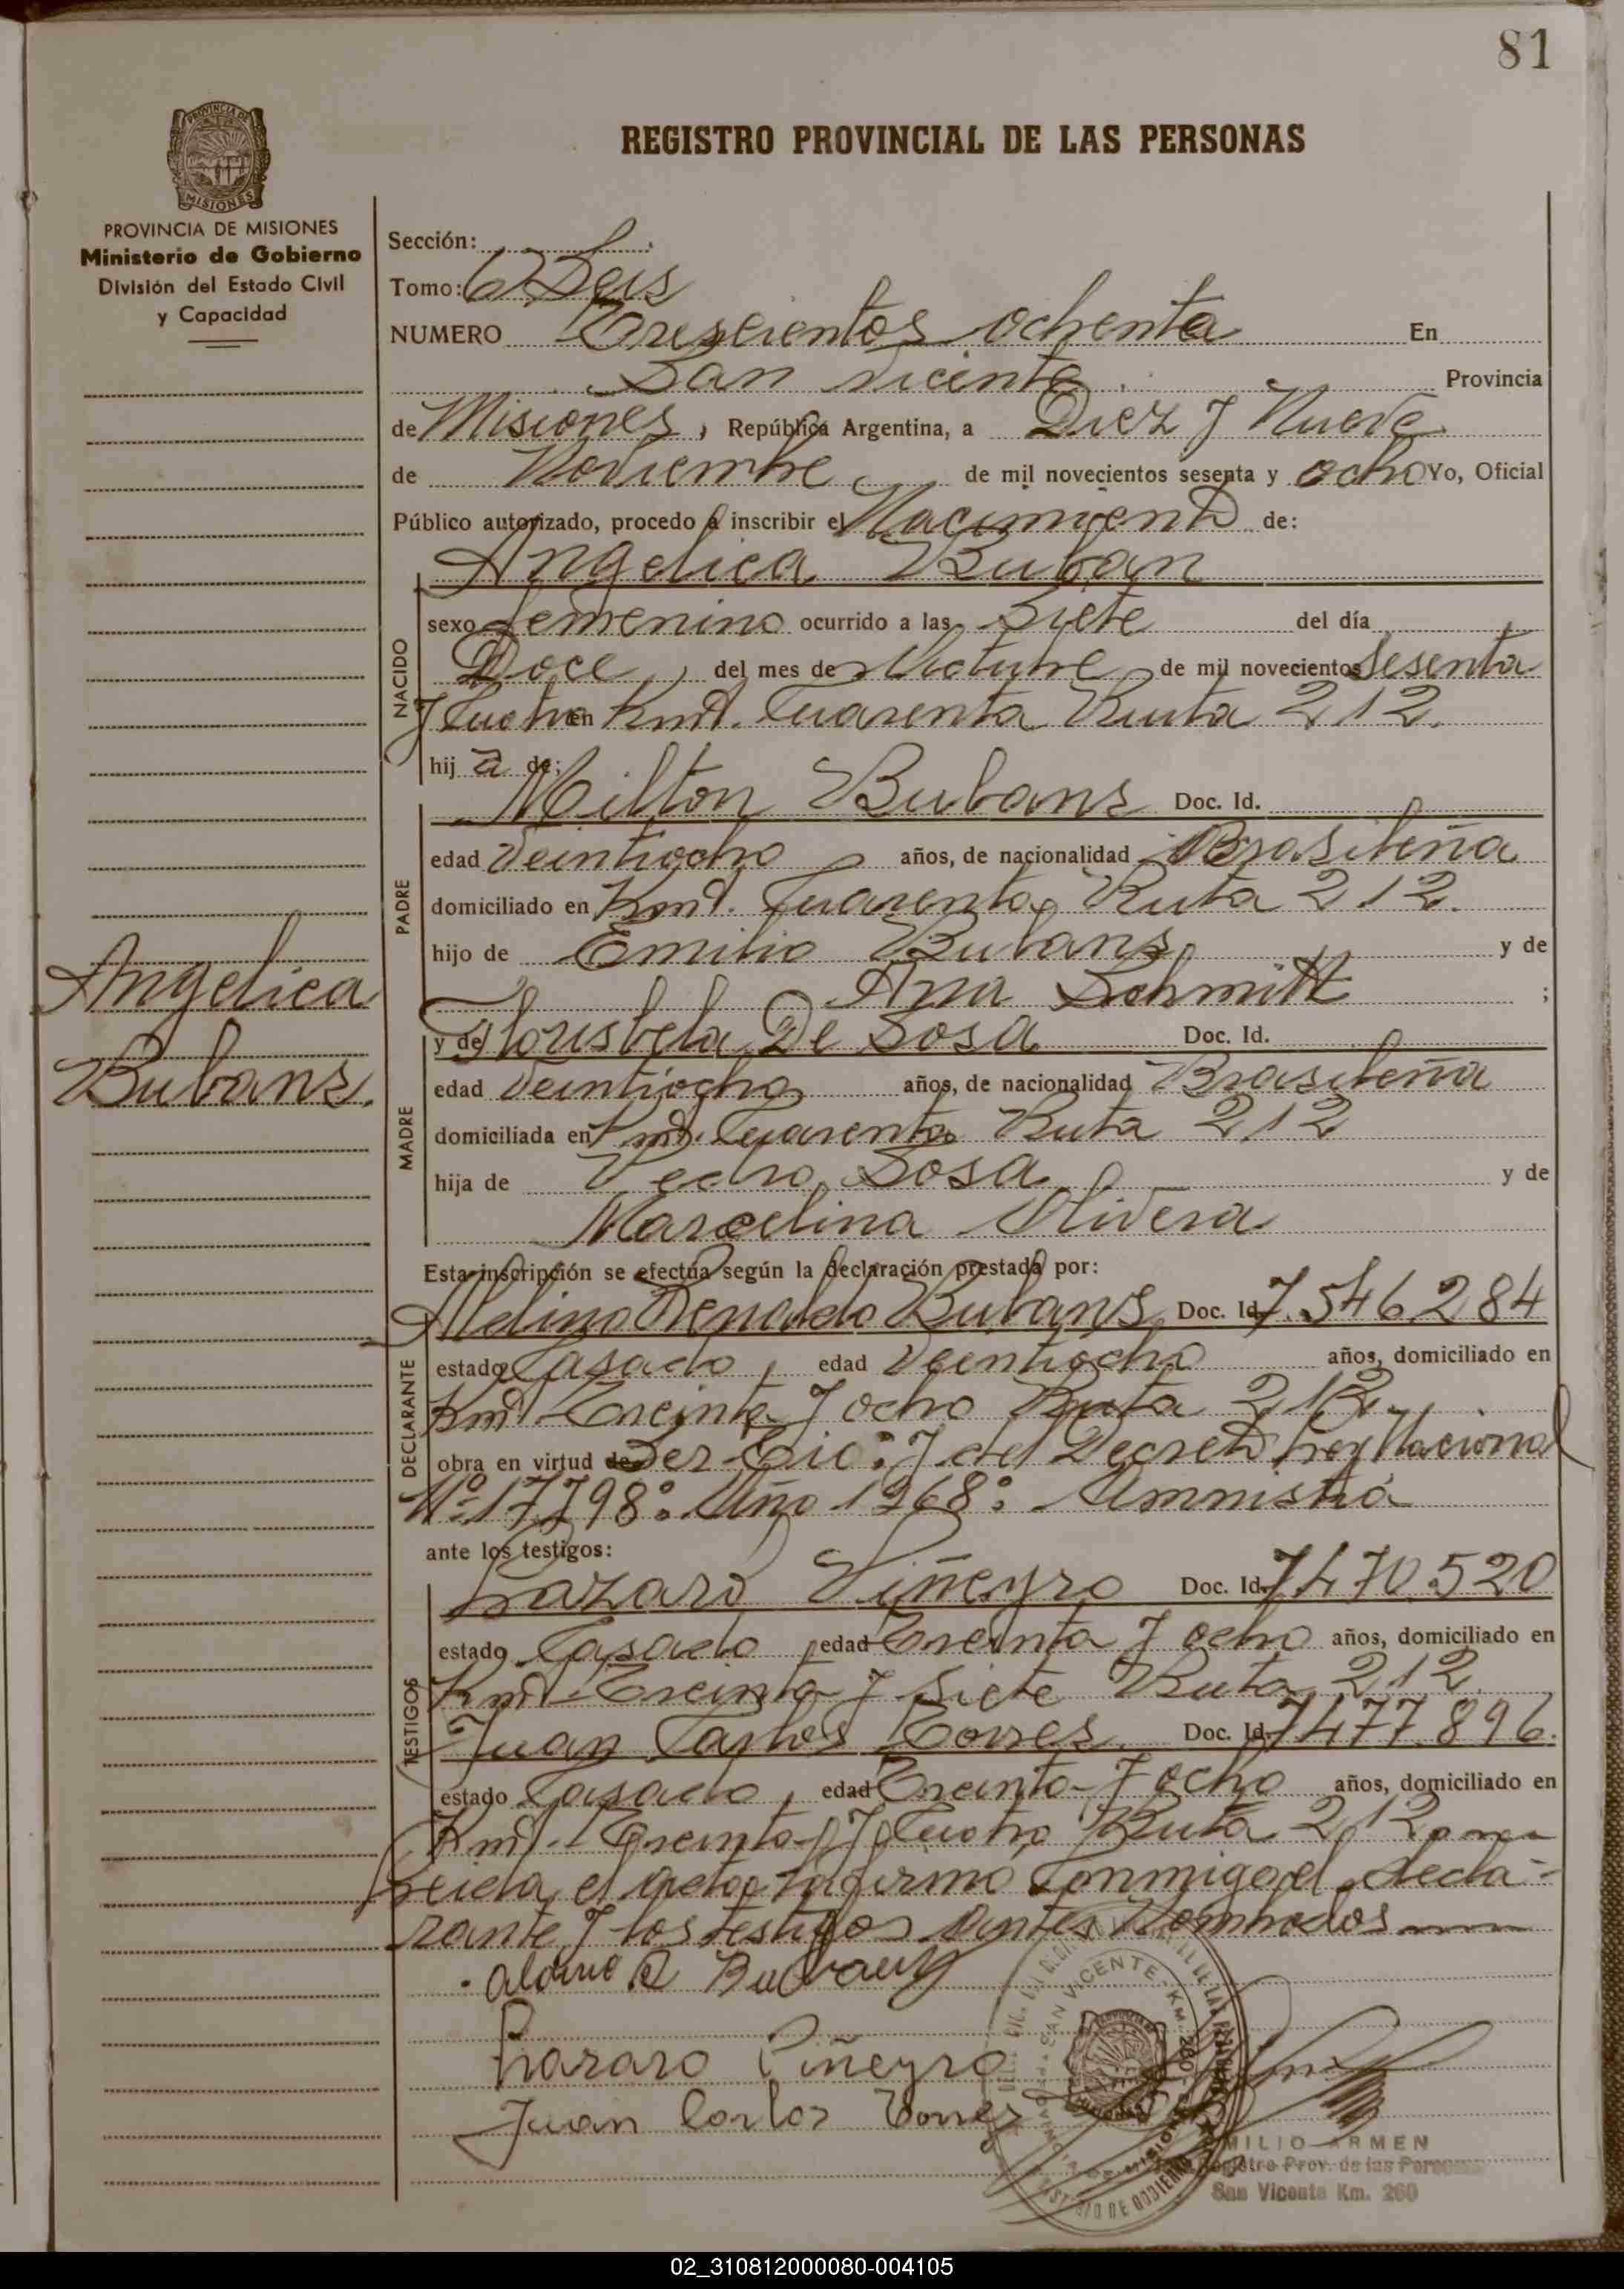 81
PROVINCIA DE
MISIONES
REGISTRO PROVINCIAL DE LAS PERSONAS
PROVINCIA DE MISIONES
Ministerio de Gobierno
División del Estado Civil
y Capacidad
Sección:
Tomo: 6 Seis
NUMERO Trescientos ochenta En
San Vicente Provincia
de Misiones, República Argentina, a Diez y Nueve
de Noviembre de mil novecientos sesenta y ocho Yo, Oficial
Público autorizado, procedo a inscribir el Nacimiento de:
Angelica Buban
NACIDO
sexo femenino ocurrido a las Siete del día
Doce, del mes de Octubre de mil novecientos Sesenta
y Cuatro en Kmt. Cuarenta Ruta 212.
hij a de;
Milton Bubans Doc. Id.
PADRE
edad Veintiocho años, de nacionalidad Brasileña
domiciliado en Kmt. Cuarenta Ruta 212.
hijo de Emilio Bubans y de
Ana Schmitt ;
Angelica
Bubans.
y de Florisbela De Sosa Doc. Id.
MADRE
edad Veintiocho años, de nacionalidad Brasileña
domiciliada en Kmt. Cuarenta Ruta 212
hija de Pedro Sosa y de
Marcelina Olivera
Esta inscripción se efectúa según la declaración prestada por:
Bubans Doc. Id. 7.546.284
DECLARANTE
estado Casado, edad Veintiocho años, domiciliado en
Kmt Treinta y ocho Ruta 212.
obra en virtud de Ser Tio: y del Decreto Ley Nacional
Nº 17798: Año 1968: Amnistia
ante los testigos:
Lazaro Piñeyro Doc. Id. 7470.520
TESTIGOS
estado Casado, edad Treinta y ocho años, domiciliado en
Kmt Treinta y Siete Ruta 212
Juan Carlos Torres Doc. Id. 7477.896.
estado Casado, edad Treinta y ocho años, domiciliado en
Kmt. Treinta y Cuatro Ruta 212
Leida el acta la firma conmigo el decla-
rante y los testigos antes Nombrados
Lazaro Piñeyro
Juan Carlos Torres
SAN VICENTE - Km 260
MILIO ARMEN
Registro Prov. de las Personas
San Vicente Km. 260
02_310812000080-004105